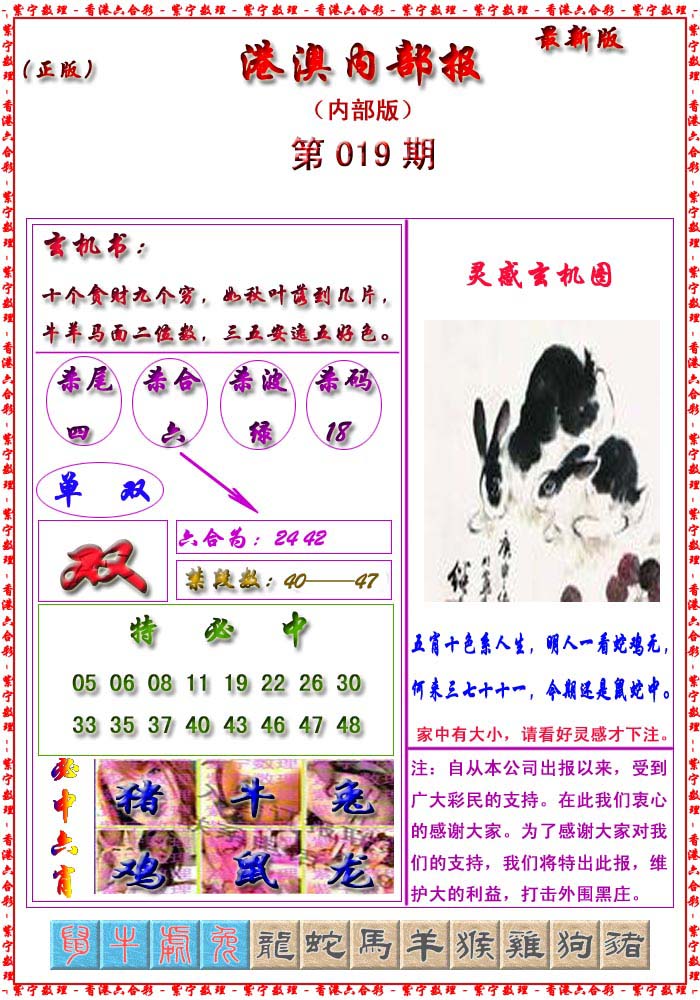 紫宁数理 - 香港六合彩 - 紫宁数理 - 香港六合彩 - 紫宁数理 - 香港六合彩 - 紫宁数理 - 香港六合彩 - 紫宁数理
最新版
（正版）
港澳内部报
（内部版）
第 019 期
玄机书：
十个贪财九个穷，如秋叶落到几片，
牛羊马面二位数，三五安逸五好色。
杀尾 杀合 杀波 杀码
四 六 绿 18
单 双
双
六合为：24 42
禁段数：40——47
特 必 中
05 06 08 11 19 22 26 30
33 35 37 40 43 46 47 48
必中六肖
猪 牛 兔
鸡 鼠 龙
灵感玄机图
五肖十色系人生，明人一看蛇鸡无，
何来三七十十一，令期还是鼠蛇中。
家中有大小，请看好灵感才下注。
注：自从本公司出报以来，受到
广大彩民的支持。在此我们衷心
的感谢大家。为了感谢大家对我
们的支持，我们将特出此报，维
护大的利益，打击外围黑庄。
鼠 牛 虎 兔 龍 蛇 馬 羊 猴 雞 狗 豬
紫宁数理 - 香港六合彩 - 紫宁数理 - 香港六合彩 - 紫宁数理 - 香港六合彩 - 紫宁数理 - 香港六合彩 - 紫宁数理